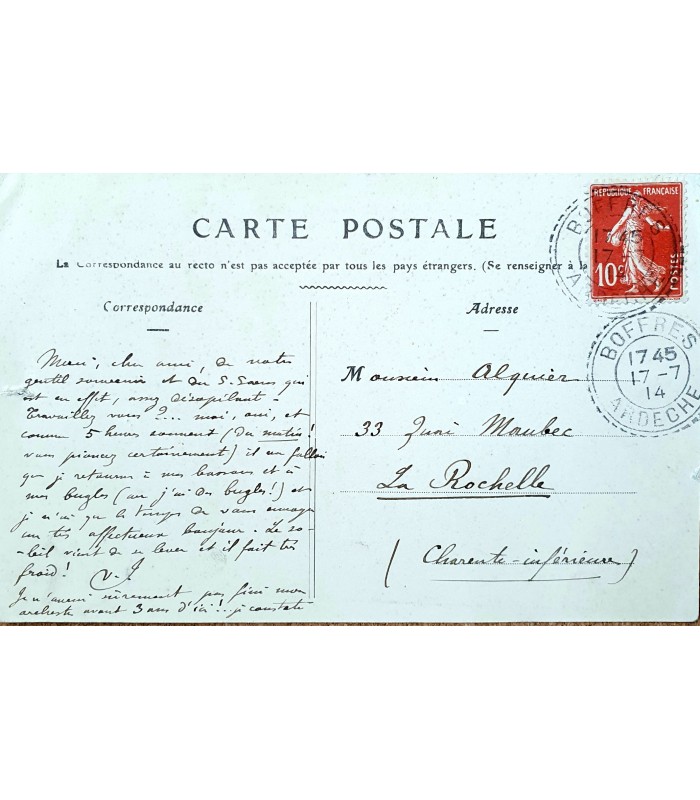 CARTE POSTALE
La Correspondance au recto n'est pas acceptée par tous les pays étrangers. (Se renseigner à la
Correspondance
Merci, cher ami, de votre
gentil souvenir et du S. Saens qui
est en effet, assez désopilant -
Travaillez vous ?... moi, oui, et
comme 5 heures sonnent (du matin!
vous pioncez certainement) il va falloir
que je retourne à mes bassons et à
mes bugles (car j'ai des bugles!) et
je n'ai que le temps de vous envoyer
un très affectueux bonjour. Le so-
-leil vient de se lever et il fait très
froid! V. I.
Je n'aurai sûrement pas fini mon
orchestre avant 3 ans d'ici!.. je constate
Adresse
Monsieur Alquier
33 Quai Maubec
La Rochelle
(Charente-inférieure)
RÉPUBLIQUE FRANÇAISE
10c
POSTES
BOFFRES
1745
17
BOFFRES
1745
17-7
14
ARDECHE